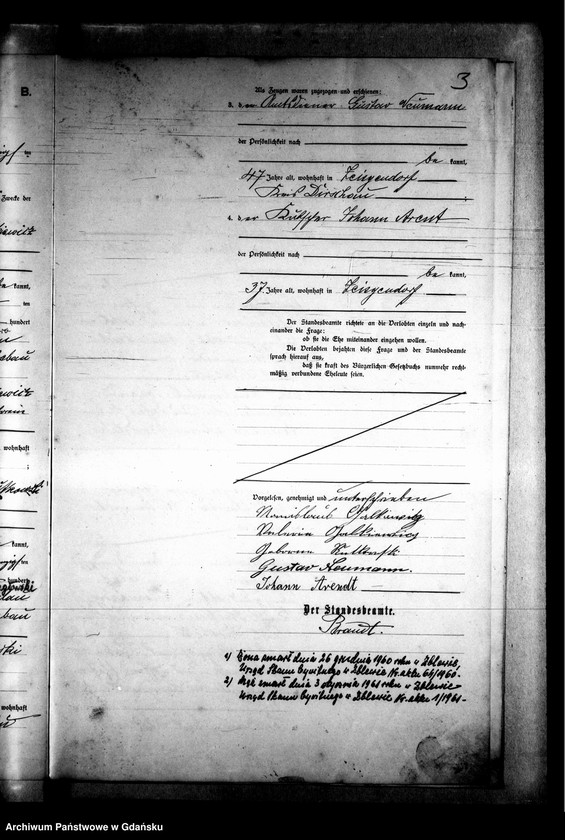 B.
3
Als Zeugen waren zugezogen und erschienen:
3. der Amtsdiener Gustav Neumann
der Persönlichkeit nach
be kannt,
47 Jahre alt, wohnhaft in Zeisgendorf
Kreis Dirschau
4. der Kutscher Johann Arent
der Persönlichkeit nach
be kannt,
37 Jahre alt, wohnhaft in Zeisgendorf
Der Standesbeamte richtete an die Verlobten einzeln und nach-
einander die Frage:
ob sie die Ehe miteinander eingehen wollen.
Die Verlobten bejahten diese Frage und der Standesbeamte
sprach hierauf aus,
daß sie kraft des Bürgerlichen Gesetzbuchs nunmehr recht-
mäßig verbundene Eheleute seien.
Vorgelesen, genehmigt und unterschrieben
Galkiewicz
Valeria Galkiewicz
geborene
Gustav Neumann.
Johann Arendt
Der Standesbeamte.
Brandt.
1) Żona zmarł dnia 26 grudnia 1960 roku w Zblewie,
Urząd Stanu Cywilnego w Zblewie Nr. aktu 66/1960.
2) Mąż zmarł dnia 3 stycznia 1961 roku w Zblewie
Urząd Stanu Cywilnego w Zblewie Nr. aktu 1/1961-
Archiwum Państwowe w Gdańsku